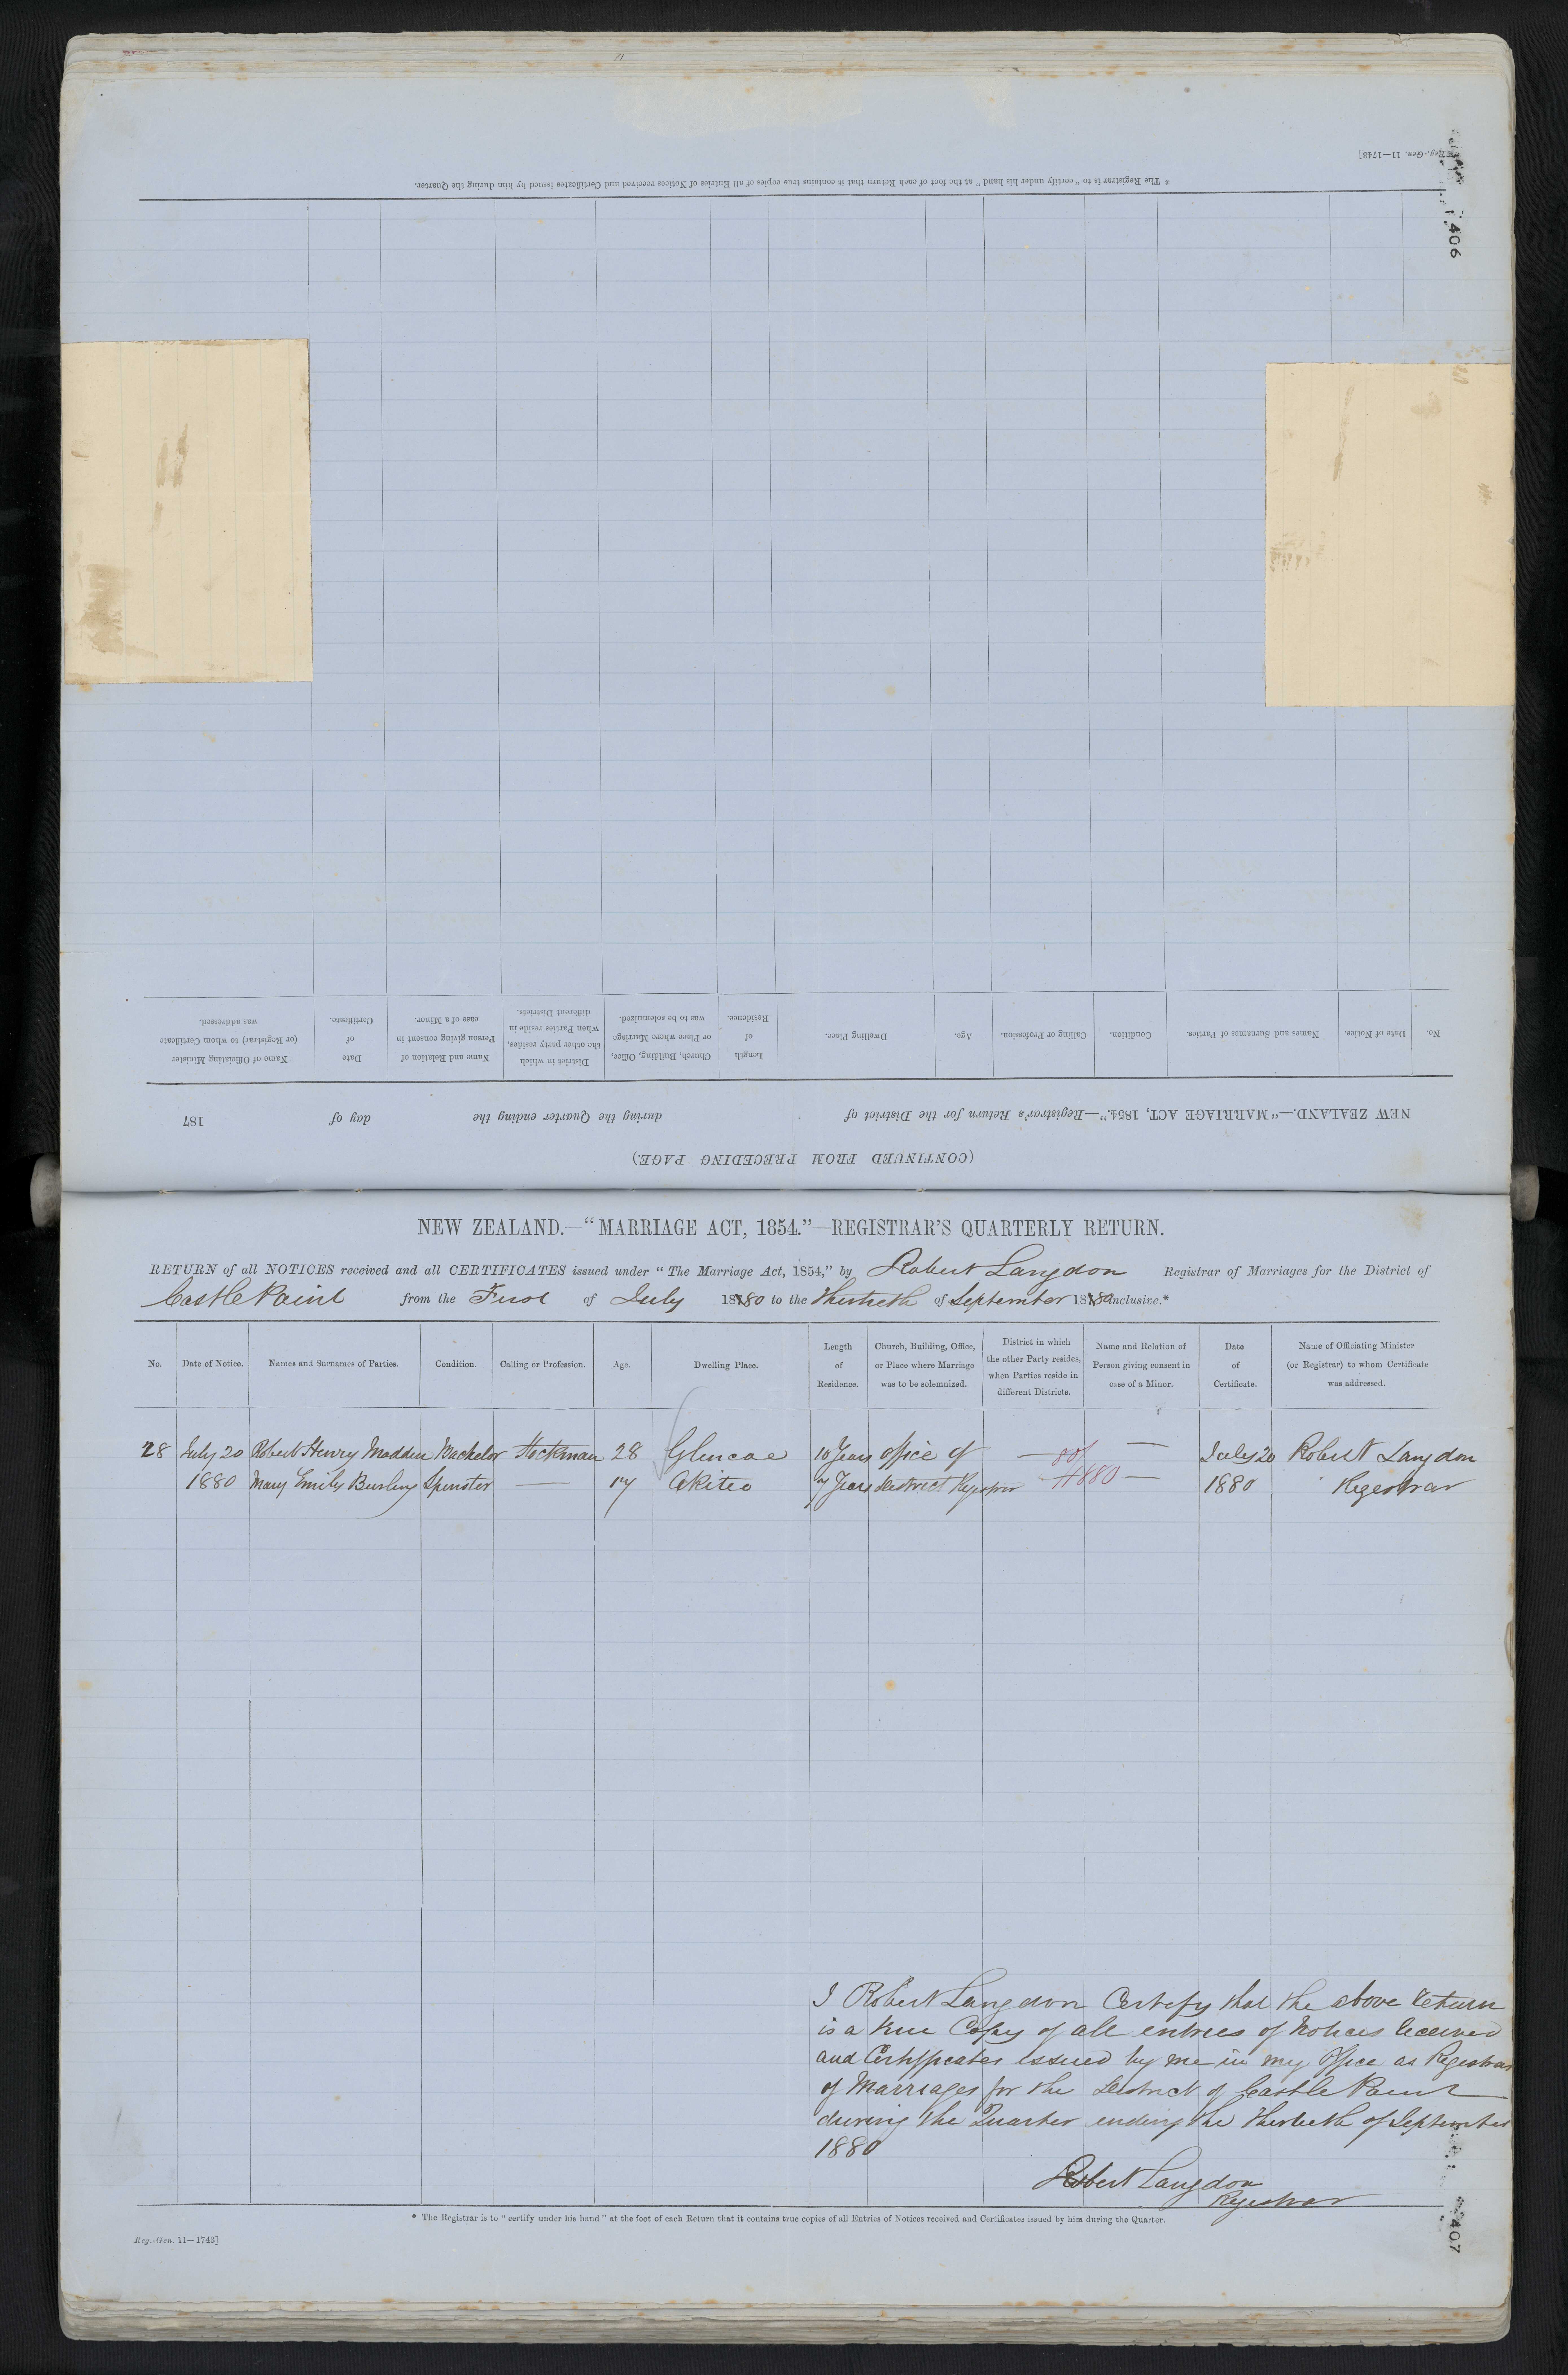 Reg.-Gen. 11—1743]
406
* The Registrar is to "certify under his hand" at the foot of each Return that it contains true copies of all Entries of Notices received and Certificates issued by him during the Quarter.
(CONTINUED FROM PRECEDING PAGE.)
NEW ZEALAND.—"MARRIAGE ACT, 1854."—Registrar's Return for the District of during the Quarter ending the day of 187
No. Date of Notice. Names and Surnames of Parties. Condition. Calling or Profession. Age. Dwelling Place. Length of Residence. Church, Building, Office, or Place where Marriage was to be solemnized. District in which the other party resides, when Parties reside in different Districts. Name and Relation of Person giving consent in case of a Minor. Date of Certificate. Name of Officiating Minister (or Registrar) to whom Certificate was addressed.
NEW ZEALAND.—"MARRIAGE ACT, 1854."—REGISTRAR'S QUARTERLY RETURN.
RETURN of all NOTICES received and all CERTIFICATES issued under "The Marriage Act, 1854," by Robert Langdon Registrar of Marriages for the District of
Castle Point from the First of July 1880 to the Thirtieth of September 1880 inclusive.*
No. Date of Notice. Names and Surnames of Parties. Condition. Calling or Profession. Age. Dwelling Place. Length of Residence. Church, Building, Office, or Place where Marriage was to be solemnized. District in which the other Party resides, when Parties reside in different Districts. Name and Relation of Person giving consent in case of a Minor. Date of Certificate. Name of Officiating Minister (or Registrar) to whom Certificate was addressed.
28 July 20 Robert Henry Madden Bachelor Stockman 28 Glencoe 10 Years office of — — July 20 Robert Langdon
1880 Mary Emily Burling Spinster — 17 Akiteo 7 Years District Registrar 880 — 1880 Registrar
I Robert Langdon Certify that the above return
is a true Copy of all entries of Notices received
and Certificates issued by me in my Office as Registrar
of Marriages for the District of Castle Point
during the Quarter ending the Thirtieth of September
1880
Robert Langdon
Registrar
* The Registrar is to "certify under his hand" at the foot of each Return that it contains true copies of all Entries of Notices received and Certificates issued by him during the Quarter.
Reg.-Gen. 11—1743]
407